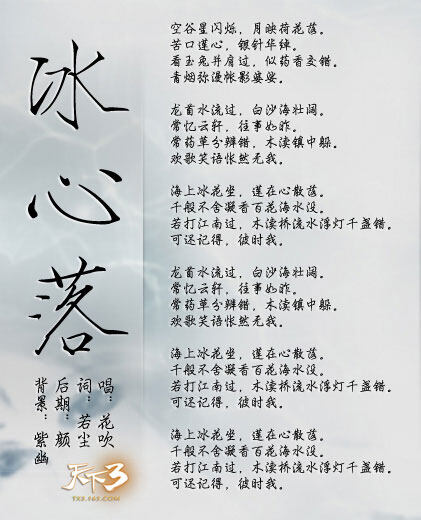 冰心落
唱：花吹
词：若尘
后期：颜
背景：紫幽
天下3
TX3.163.COM
空谷星闪烁，月映荷花落。
苦口莲心，银针华绰。
看玉兔并肩过，似药香交错。
青烟弥漫帐影婆娑。
龙首水流过，白沙海壮阔。
常忆云轩，往事如昨。
常药草分辨错，木渎镇中躲。
欢歌笑语怅然无我。
海上冰花坐，莲在心散落。
千般不舍凝香百花海水没。
若打江南过，木渎桥流水浮灯千盏错。
可还记得，彼时我。
龙首水流过，白沙海壮阔。
常忆云轩，往事如昨。
常药草分辨错，木渎镇中躲。
欢歌笑语怅然无我。
海上冰花坐，莲在心散落。
千般不舍凝香百花海水没。
若打江南过，木渎桥流水浮灯千盏错。
可还记得，彼时我。
海上冰花坐，莲在心散落。
千般不舍凝香百花海水没。
若打江南过，木渎桥流水浮灯千盏错。
可还记得，彼时我。